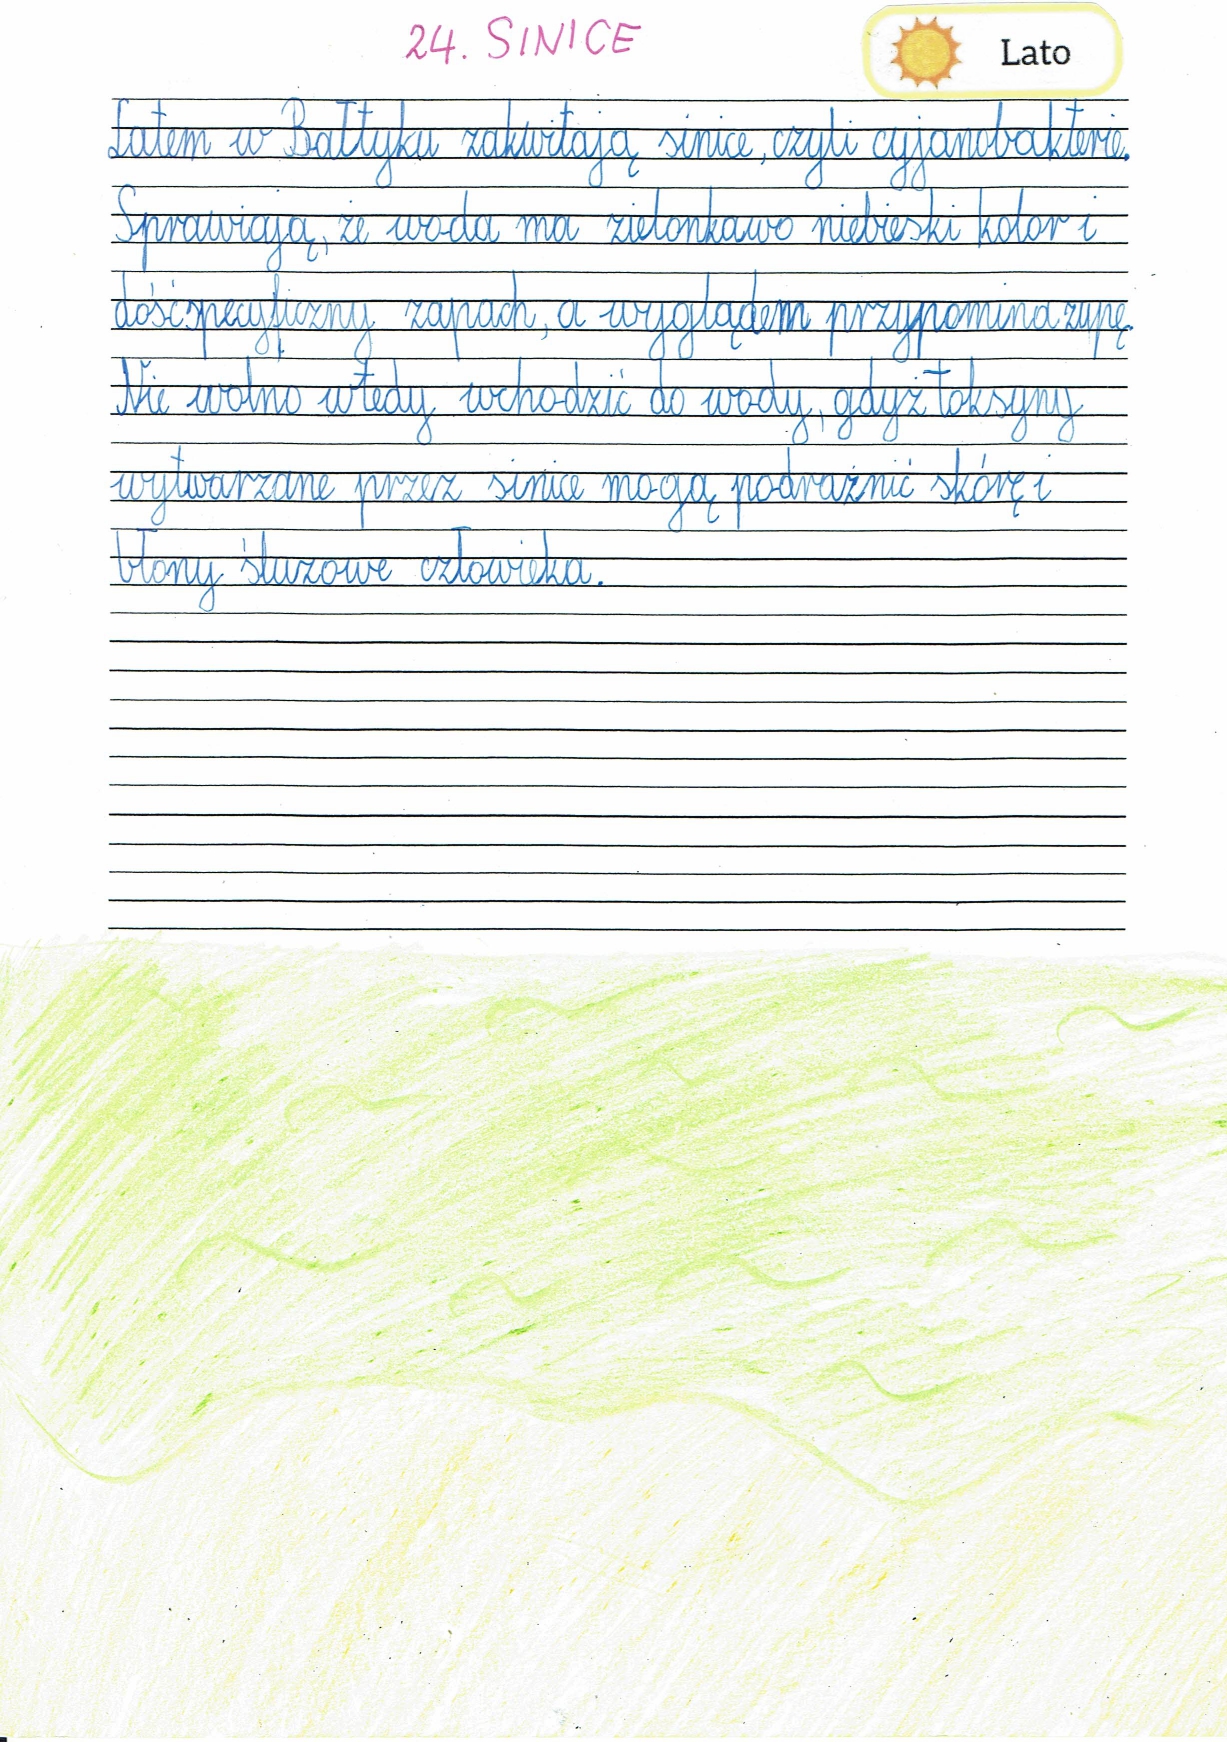 24. SINICE
Lato
Latem w Bałtyku zakwitają sinice, czyli cyjanobakterie.
Sprawiają, że woda ma zielonkawo niebieski kolor i
dość specyficzny zapach, a wyglądem przypomina zupę.
Nie wolno wtedy wchodzić do wody, gdyż toksyny
wytwarzane przez sinice mogą podrażnić skórę i
błony śluzowe człowieka.